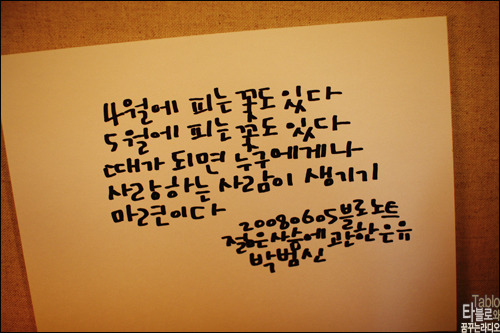 4월에 피는 꽃도 있다
5월에 피는 꽃도 있다
때가 되면 누구에게나
사랑하는 사람이 생기기
마련이다
20080605블로노트
젊은사슴에 관한은유
박범신
Tablo
타블로와
꿈꾸는라디오